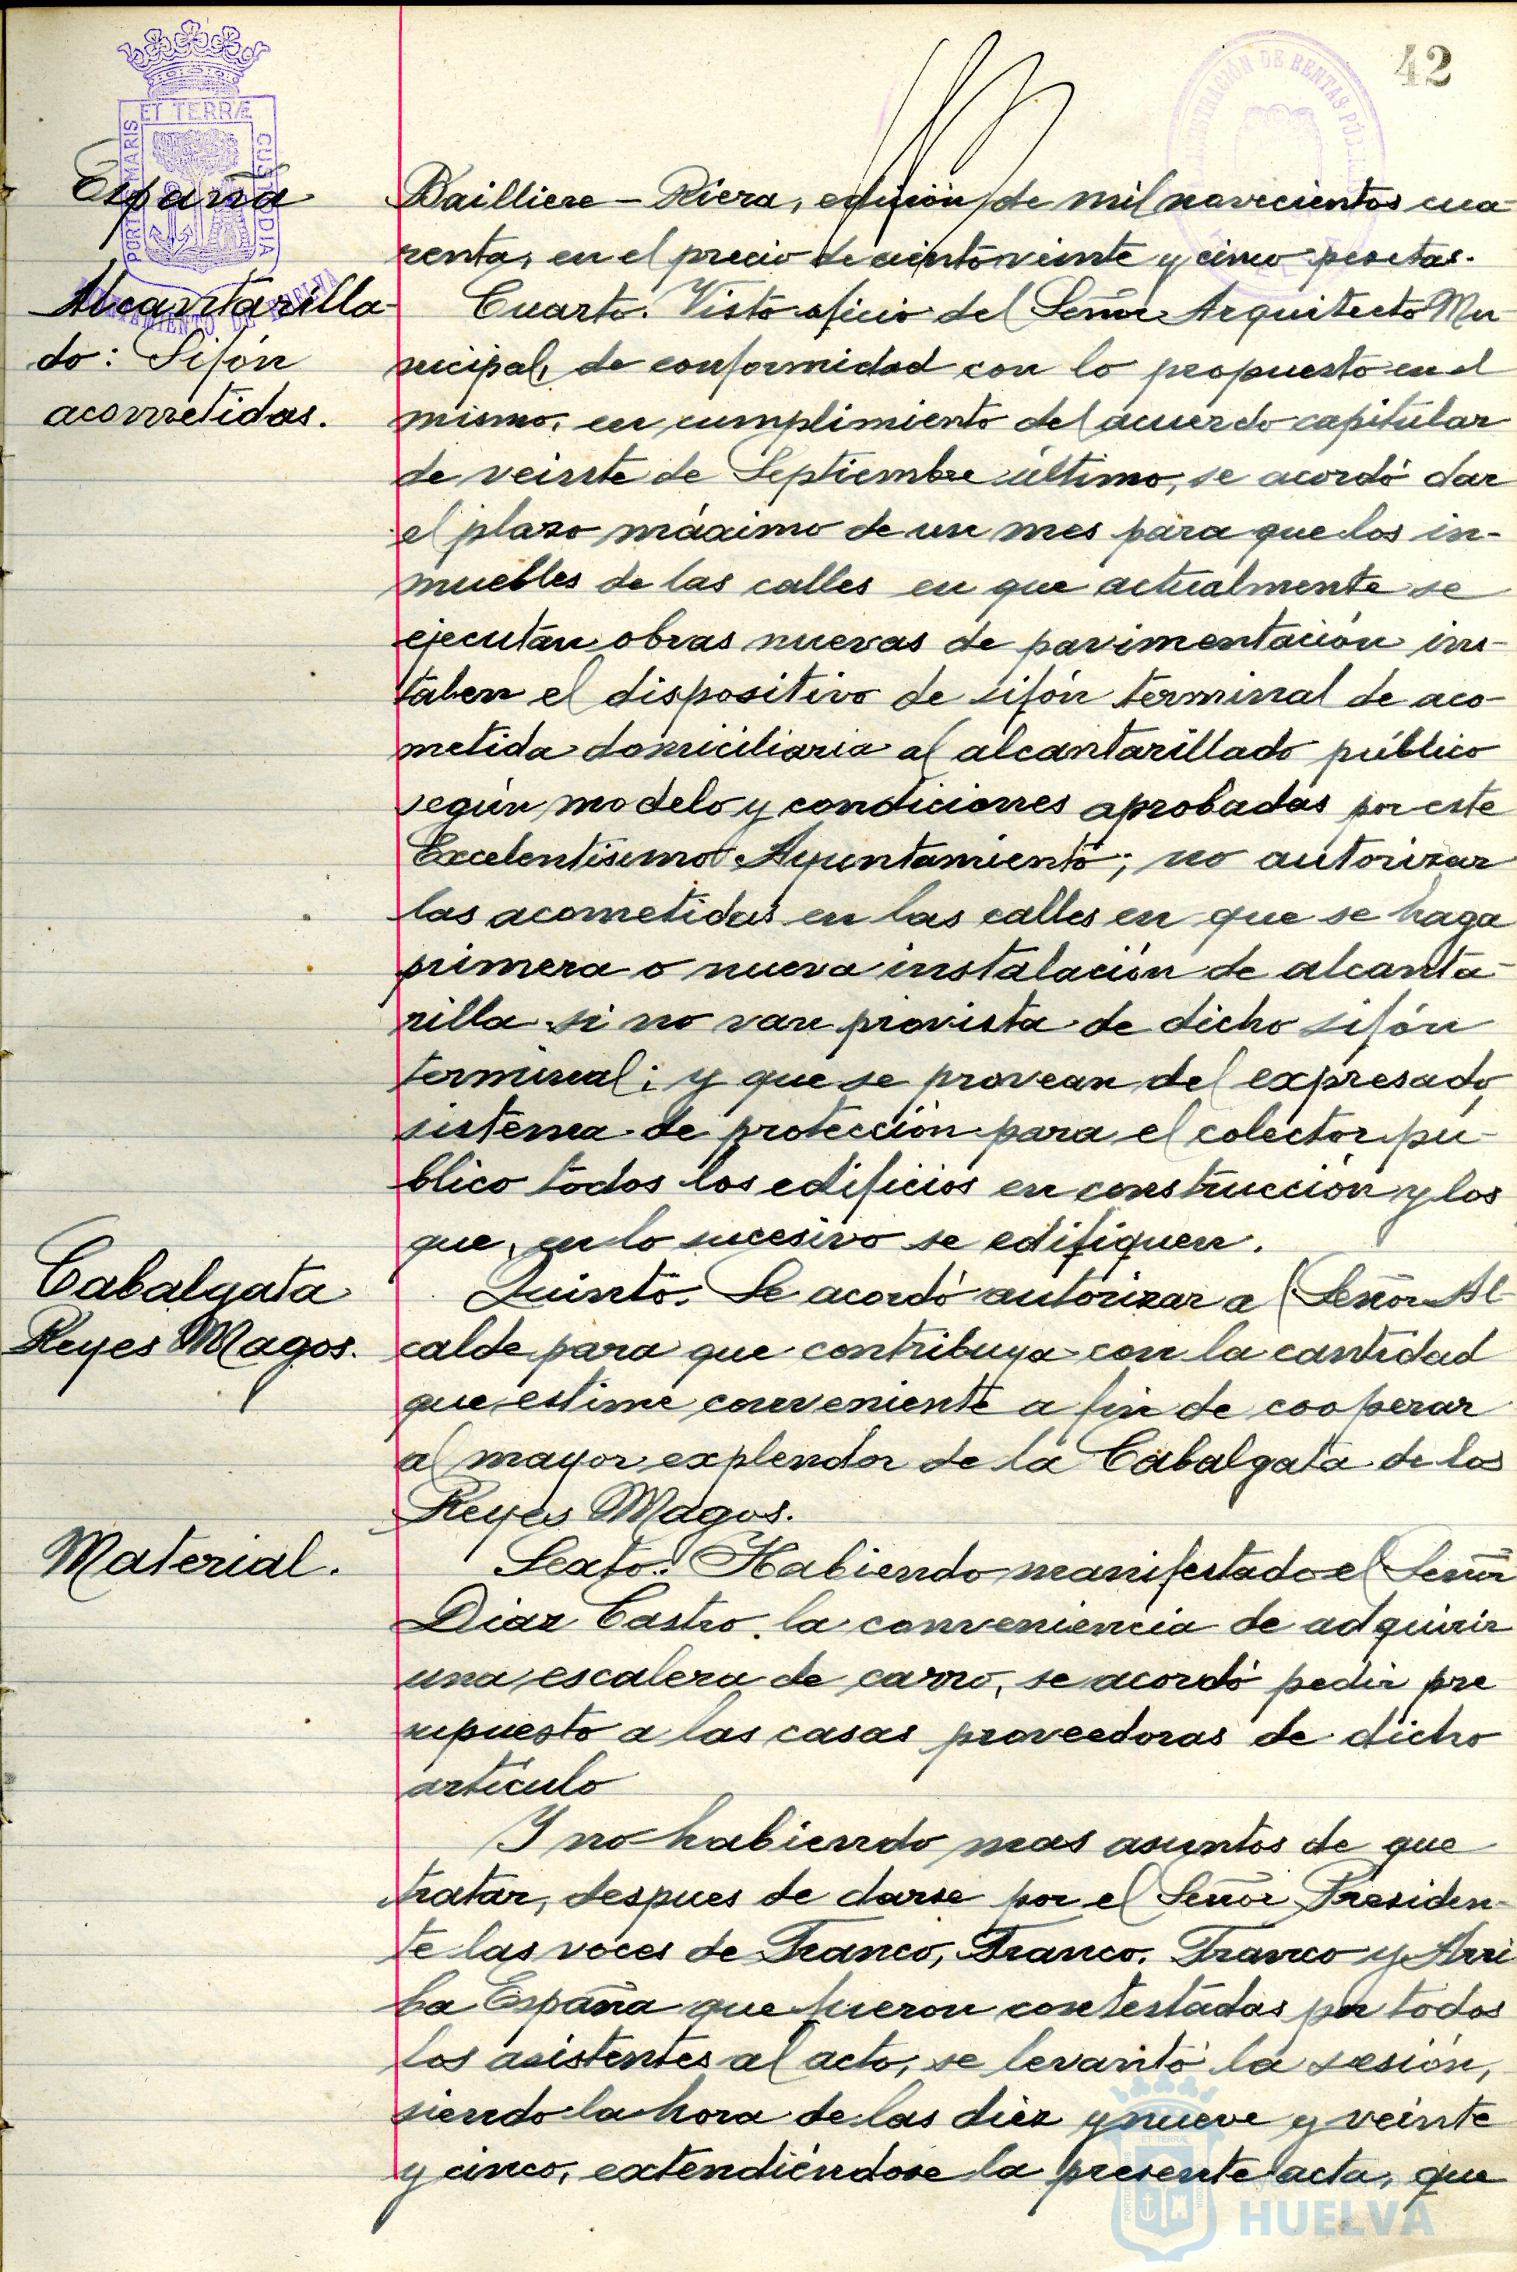 42
ET TERRÆ
PORTUS MARIS
CUSTODIA
AYUNTAMIENTO DE HUELVA
ADMINISTRACIÓN DE RENTAS PÚBLICAS
España
Bailliere - Riera, edición de mil novecientos cua-
renta, en el precio de ciento veinte y cinco pesetas.
Alcantarilla-
do: Sifón
acometidas.
Cuarto. Visto oficio del Señor Arquitecto Mu-
nicipal, de conformidad con lo propuesto en el
mismo, en cumplimiento del acuerdo capitular
de veinte de Septiembre último, se acordó dar
el plazo máximo de un mes para que los in-
muebles de las calles en que actualmente se
ejecutan obras nuevas de pavimentación ins-
talen el dispositivo de sifón terminal de aco-
metida domiciliaria al alcantarillado público
según modelo y condiciones aprobadas por este
Excelentísimo Ayuntamiento; no autorizar
las acometidas en las calles en que se haga
primera o nueva instalación de alcanta-
rilla si no van provista de dicho sifón
terminal; y que se provean del expresado
sistema de protección para el colector pú-
blico todos los edificios en construcción y los
que, en lo sucesivo se edifiquen.
Cabalgata
Reyes Magos.
Quinto. Se acordó autorizar al Señor Al-
calde para que contribuya con la cantidad
que estime conveniente a fin de cooperar
al mayor explendor de la Cabalgata de los
Reyes Magos.
Material.
Sexto. Habiendo manifestado el Señor
Diaz Castro la conveniencia de adquirir
una escalera de carro, se acordó pedir pre
supuesto a las casas proveedoras de dicho
artículo
Y no habiendo mas asuntos de que
tratar, despues de darse por el Señor Presiden-
te las voces de Franco, Franco, Franco y Arri
ba España que fueron contestadas por todos
los asistentes al acto, se levantó la sesión,
siendo la hora de las diez y nueve y veinte
y cinco, extendiéndose la presente acta, que
HUELVA